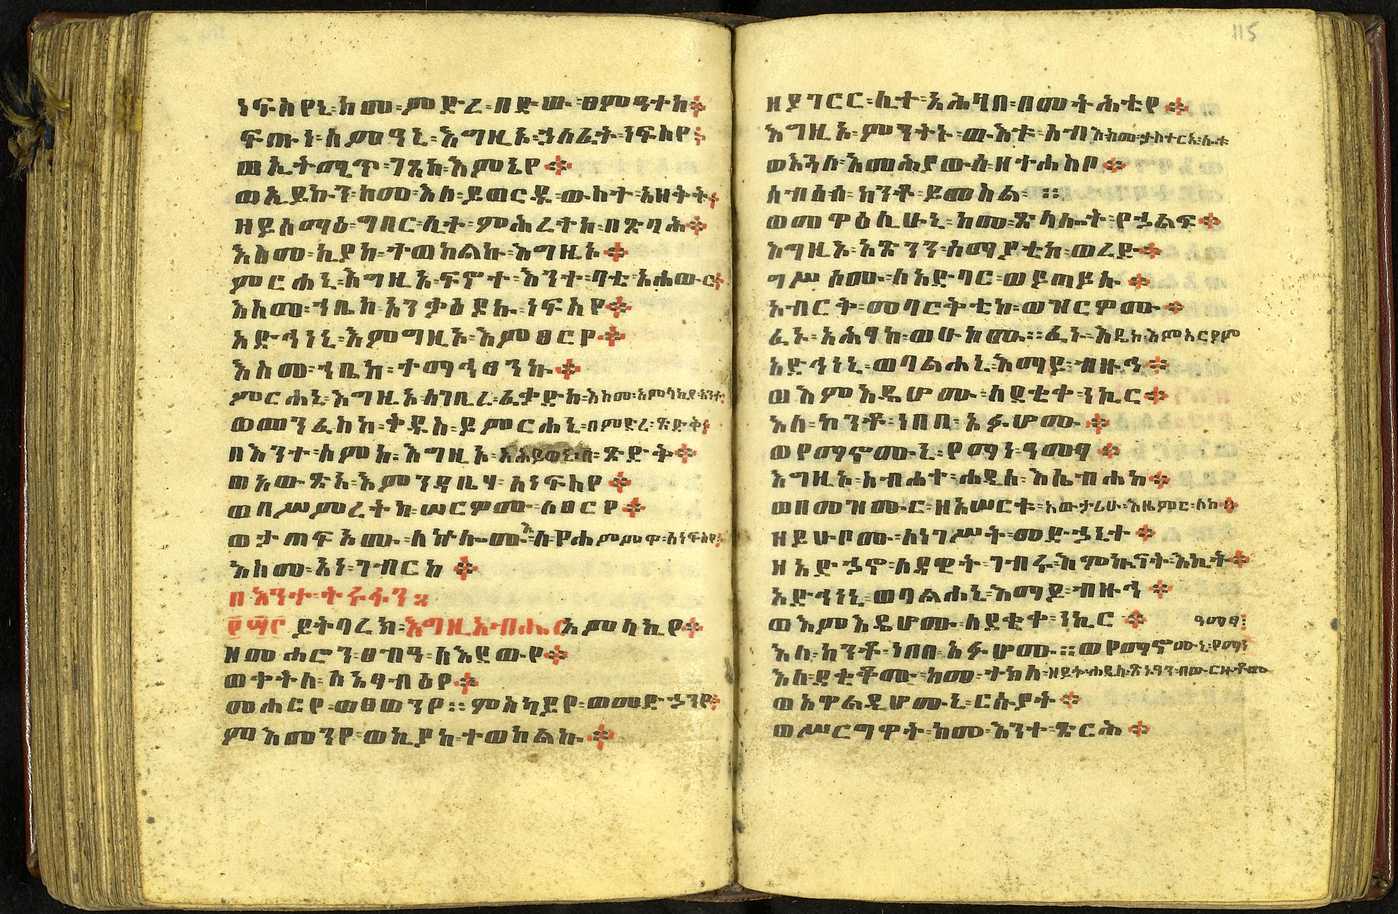 ነፍስየኒ፡ከመ፡ምድረ፡በድው፡ፀምዓተከ፨
ፍጡነ፡ስምዓኒ፡እግዚኦ፡ኃለፈት፡ነፍስየ፨
ወኢትሚጥ፡ገጸከ፡እምኔየ፨
ወኢይኩን፡ከመ፡እለ፡ይወርዱ፡ውስተ፡አዘቅት፨
ዘይሰማዕ፡ግበር፡ሊተ፡ምሕረተከ፡በጽባሕ፨
እስመ፡ኪያከ፡ተወከልኩ፡እግዚኦ፨
ምርሐኒ፡እግዚኦ፡ፍኖተ፡እንተ፡ባቲ፡አሐውር፨
እስመ፡ኀቤከ፡አንቃዕደኩ፡ነፍስየ፨
አድኅነኒ፡እምግዚኦ፡እምፀርየ፨
እስመ፡ኀቤከ፡ተማኅፀንኩ፨
ምርሐኒ፡እግዚኦ፡ለገቢረ፡ፈቃድከ፡እስመ፡አምላኪየ፡አንተ፨
ወመንፈስከ፡ቅዱስ፡ይምርሐኒ፡በምድረ፡ጽድቅ፨
በእንተ፡ስምከ፡እግዚኦ፡አሕይወኒ፡በ፡ጽድቅ፨
ወአውጽኣ፡እምንዳቤሃ፡ለነፍስየ፨
ወበሥምረትከ፡ሠርዎሙ፡ለፀርየ፨
ወታጠፍኦሙ፡ለኵሎሙ፡እለ፡የሐምምዋ፡ለነፍስየ፨
እስመ፡አነ፡ገብርከ፨
በእንተ፡ተሩፋን።
፻፵፫ ይትባረክ፡እግዚአብሔር፡አምላኪየ፨
ዘመሐሮን፡ፀብዓ፡ለእደውየ፨
ወተትለ፡ለአፃብዕየ፨
መሐርየ፡ወፀወንየ።ምስካይየ፡ወመድኃንየ፨
ምእመንየ፡ወኪያከ፡ተወከልኩ፨
ዘያገርር፡ሊተ፡አሕዛበ፡በመትሕቴየ፨
እግዚኦ፡ምንትኑ፡ውእቱ፡ሰብእ፡ከመ፡ታስተርኢ፡ሎቱ፨
ወእጓለ፡እመሕያው፡ለ፡ዘተሐስቦ፨
ሰብእሰ፡ከንቶ፡ይመስል።
ወመዋዕሊሁኒ፡ከመ፡ጽላሎት፡የኃልፍ፨
እግዚኦ፡አጽንን፡ሰማያቲከ፡ወረድ፨
ግሥሦሙ፡ለአድባር፡ወይጠይሱ፨
አብርቅ፡መባርቅቲከ፡ወዝርዎሙ፨
ፈኑ፡አሕፃከ፡ወሁከሙ።ፈኑ፡እዴከ፡እምአርያም
አድኅነኒ፡ወባልሐኒ፡እማይ፡ብዙኅ፨
ወእምእዴሆሙ፡ለደቂቀ፡ነኪር፨
እለ፡ከንቶ፡ነበበ፡አፉሆሙ፨
ወየማኖሙኒ፡የማነ፡ዓመፃ፨
እግዚኦ፡ስብሐተ፡ሐዲስ፡እሴብሐከ፨
ወበመዝሙር፡ዘአሠርቱ፡አውታሪሁ፡እዜምር፡ለከ፨
ዘይሁቦሙ፡ለነገሥት፡መድኃኒተ፨
ዘአድኃኖ፡ለዳዊት፡ገብሩ፡እምኲናት፡እኪት፨
አድኅነኒ፡ወባልሐኒ፡እማይ፡ብዙኅ፨
ወእምእዴሆሙ፡ለደቂቀ፡ነኪር፨ ዓመፃ፨
እለ፡ከንቶ፡ነበበ፡አፉሆሙ።ወየማኖሙኒ፡የማነ
እለ፡ደቂቆሙ፡ከመ፡ተክለ፡
ወአዋልዲሆሙኒ፡ርሱያት፨
ወሥርግዋት፡ከመ፡እንተ፡ጽርሕ፨
115